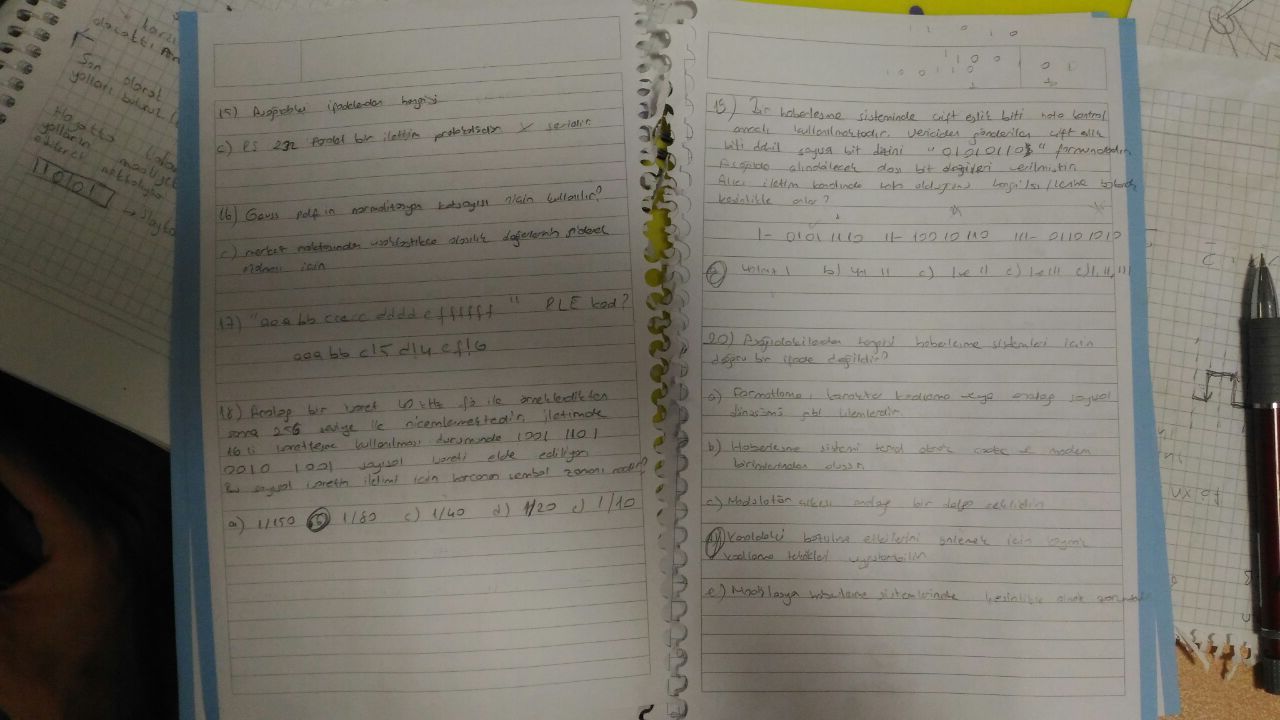 karzı
olacaktı
Son olarak
yolları bulunur
Hayatta
yolların maaliyet
edilerci
11010 1
15) Aşağıdaki ifadelerden hangisi
c) RS 232 Paralel bir iletim protokolüdür X serialdir
16) Gauss pdf in normalizasyon katsayısı niçin kullanılır?
c) merkez noktasından uzaklaştıkça olasılık değerlerinin
olması için
17) "aaa bb ccccc dddd e ffffff" RLE kod?
aaa bb c!5 d!4 e f!6
18) Analog bir işaret ile örnekledikten
sonra 256 seviye ile nicemlenmektedir. iletimde
16 li işaretleşme kullanılması durumunda 1001 1101
0010 1001 sayısal işareti elde ediliyor
Bu sayısal işaretin iletimi için harcanan sembol zamanı nedir?
a) 1/150 b) 1/80 c) 1/40 d) 1/20 e) 1/10
1 1 0 1 0
1 1 0 0
1 0 0 1 1 0
0 1
19) Bir haberleşme sisteminde çift eşlik biti hata kontrol
amaçlı kullanılmaktadır. Vericiden gönderilen çift eşlik
biti dahil sayısal bit dizini " formundadır.
Aşağıda alındabilecek bit değerleri verilmiştir.
Alıcı iletim kanalında hata olduğunu hangisi/lerine bakarak
kesinlikle anlar?
I- 0101 1110 II- 100 10 110 III- 0110 1010
a) Yalnız I b) Yal II c) I ve II d) I ve III e) I, II, III
20) Aşağıdakilerden hangisi haberleşme sistemleri için
doğru bir ifade değildir?
a) Formatlama, karakter kodlama veya analog sayısal
dönüşümü gibi işlemlerdir
b) Haberleşme sistemi temel olarak ve modem
birimlerinden oluşur
c) Modülatör çıkışı analog bir dalga şeklidir
d) Kanaldaki bozulma etkilerini önlemek için kaynak
kodlama teknikleri uygulanabilir
e) Modülasyon haberleşme sistemlerinde kesinlikle olmak